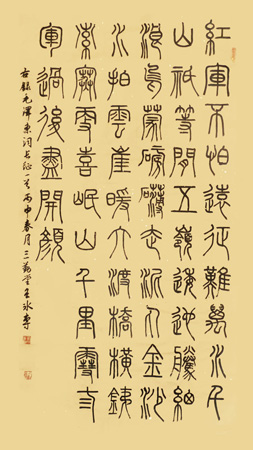 紅軍不怕遠征難萬水千
山祇等閒五嶺逶迤騰細
浪烏蒙磅礴走泥丸金沙
水拍雲崖暖大渡橋橫鐵
索寒更喜岷山千里雪三
軍過後盡開顏
右錄毛澤東詞長征一首丙申春月三